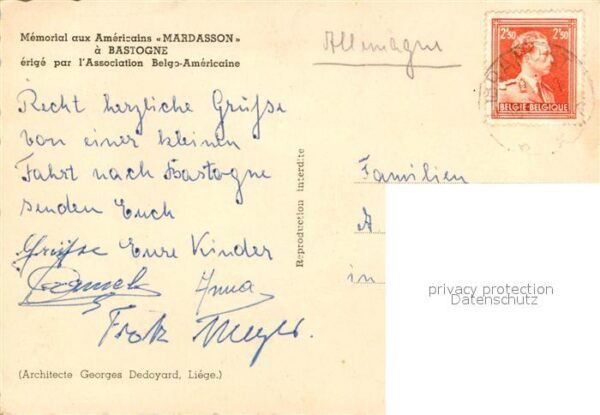 Mémorial aux Américains «MARDASSON»
à BASTOGNE
érigé par l'Association Belgo-Américaine
Allemagne
2F50 2F50
BELGIE-BELGIQUE
Recht herzliche Grüße
von einer kleinen
Fahrt nach Bastogne
senden Euch
Grüße Eure Kinder
Anna
Meyer.
Reproduction interdite
Familien
A
in
privacy protection
Datenschutz
(Architecte Georges Dedoyard, Liége.)